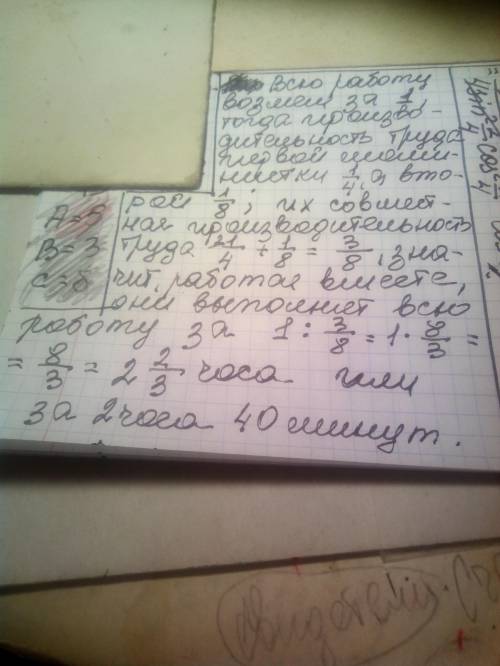 Всю работу
возмем за 1,
тогда произво-
дительность труда
первой машин-
нистки 1/4, а вто-
рой 1/8; их совмест-
ная производительность
труда 1/4 + 1/8 = 3/8, зна-
чит, работая вместе,
они выполнят всю
работу за 1 : 3/8 = 1 · 8/3 =
= 8/3 = 2 2/3 часа или
за 2 часа 40 минут.
A=5
B=3
C=
свидетели